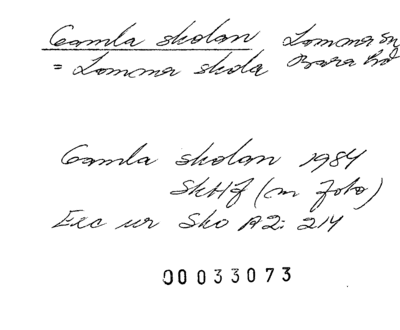 Gamla skolan Lomma sn
= Lomma skola Bara hd
Gamla skolan 1984
SkHf (m foto)
Exc ur Sko A2: 214
00033073